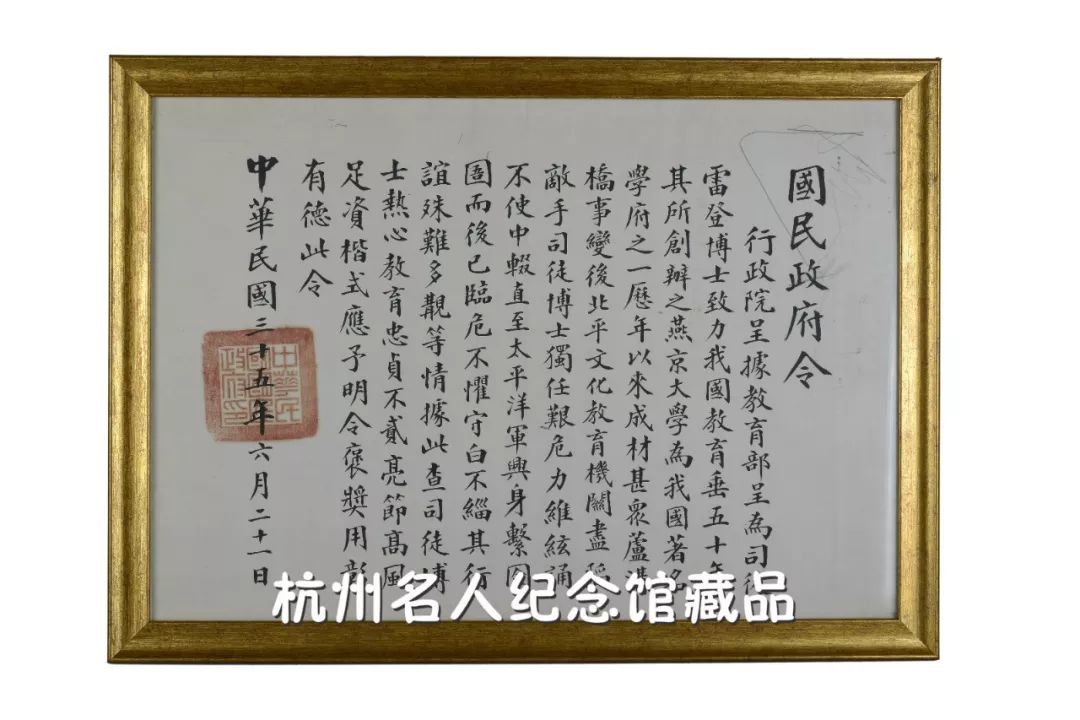 國民政府令
行政院呈據教育部呈為司徒
雷登博士致力我國教育垂五十年
其所創辦之燕京大學為我國著名
學府之一歷年以來成材甚眾蘆溝
橋事變後北平文化教育機關盡陷
敵手司徒博士獨任艱危力維絃誦
不使中輟直至太平洋軍興身繫囹
圄而後已臨危不懼守白不緇其行
誼殊難多覯等情據此查司徒博
士熱心教育忠貞不貳亮節高風
足資楷式應予明令褒獎用彰
有德此令
中華民國三十五年六月二十一日
杭州名人纪念馆藏品